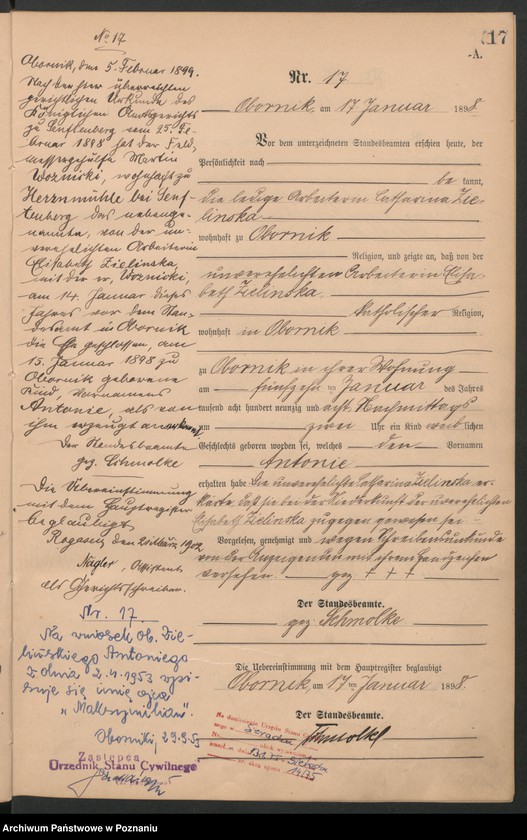 No 17
Obornik, den 5. Februar 1899.
Nach der hier überreichten
gerichtlichen Urkunde des
Königlichen Amtsgerichts
zu Senftenberg vom 25. Fe-
bruar 1898 hat der Feld-
messergehülfe Martin
Wozniski, wohnhaft zu
Herznmühle bei Senf-
tenberg das nebenge-
nannte, von der un-
verehelichten Arbeiterin
Elisabeth Zielinska,
mit der er, Wozniski,
am 14. Januar dieses
Jahres vor dem Stan-
desamt in Obornik
die Ehe geschlossen, am
15. Januar 1898 zu
Obornik geborene
Kind, Vornamens
Antonie, als von
ihm erzeugt anerkannt.
Der Standesbeamte
gez. Schmolke
Die Übereinstimmung
mit dem Hauptregister
beglaubigt
Rogasen, den März 1902
Nagler, Assistent
als Gerichtsschreiber.
Nr. 17.
Na wniosek ob. Zie-
lińskiego Antoniego
z dnia 2.4.1953 wpi-
suje się imię ojca
"Maksymilian".
Oborniki, 23.9.53
Zastępca
Urzędnik Stanu Cywilnego
17
A.
Nr. 17
Obornik, am 17 Januar 1898
Vor dem unterzeichneten Standesbeamten erschien heute, der
Persönlichkeit nach
be kannt,
die ledige Arbeiterin Catharina Zie-
linska
wohnhaft zu Obornik
Religion, und zeigte an, daß von der
unverehelichten Arbeiterin Elisa-
beth Zielinska
katholischer Religion,
wohnhaft in Obornik
zu Obornik in ihrer Wohnung
am fünfzehn ten Januar des Jahres
tausend acht hundert neunzig und acht Nachmittags
um zwei Uhr ein Kind weib lichen
Geschlechts geboren worden sei, welches den Vornamen
Antonie
erhalten habe. Die unverehelichte Catharina Zielinska er-
klärte, daß sie bei der Niederkunft der unverehelichten
Elisabeth Zielinska zugegen gewesen sei
Vorgelesen, genehmigt und wegen Schreibensunkunde
von der Anzeigenden mit ihrem Handzeichen
versehen. gez + + +
Der Standesbeamte.
gez Schmolke
Die Uebereinstimmung mit dem Hauptregister beglaubigt
Obornik, am 17 ten Januar 1898.
Der Standesbeamte.
Schmolke
Archiwum Państwowe w Poznaniu